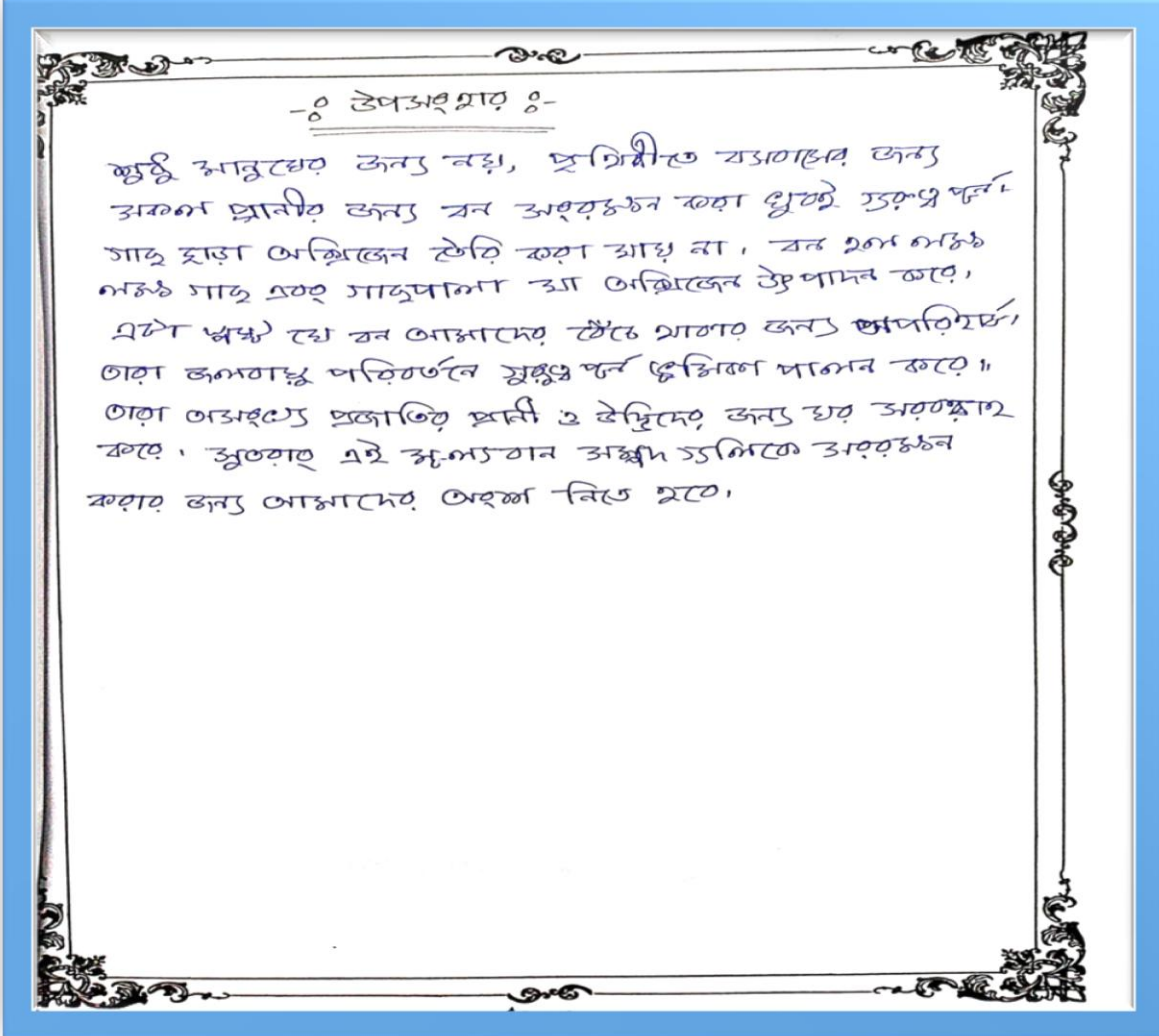 -ঃ উপসংহার ঃ-
শুধু মানুষের জন্য নয়, পৃথিবীতে বসবাসের জন্য
সকল প্রানীর জন্য বন সংরক্ষন করা খুবই গুরুত্ব পূর্ন।
গাছ ছাড়া অক্সিজেন তৈরি করা যায় না। বন হল লক্ষ
লক্ষ গাছ এবং গাছপালা যা অক্সিজেন উৎপাদন করে।
এটা স্পষ্ট যে বন আমাদের বেঁচে থাকার জন্য অপরিহার্য।
তারা জলবায়ু পরিবর্তনে গুরুত্ব পূর্ন ভূমিকা পালন করে॥
তারা অসংখ্য প্রজাতির প্রানী ও উদ্ভিদের জন্য ঘর সরবরাহ
করে। সুতরাং এই মূল্যবান সম্পদ গুলিকে সংরক্ষন
করার জন্য আমাদের অংশ নিতে হবে।